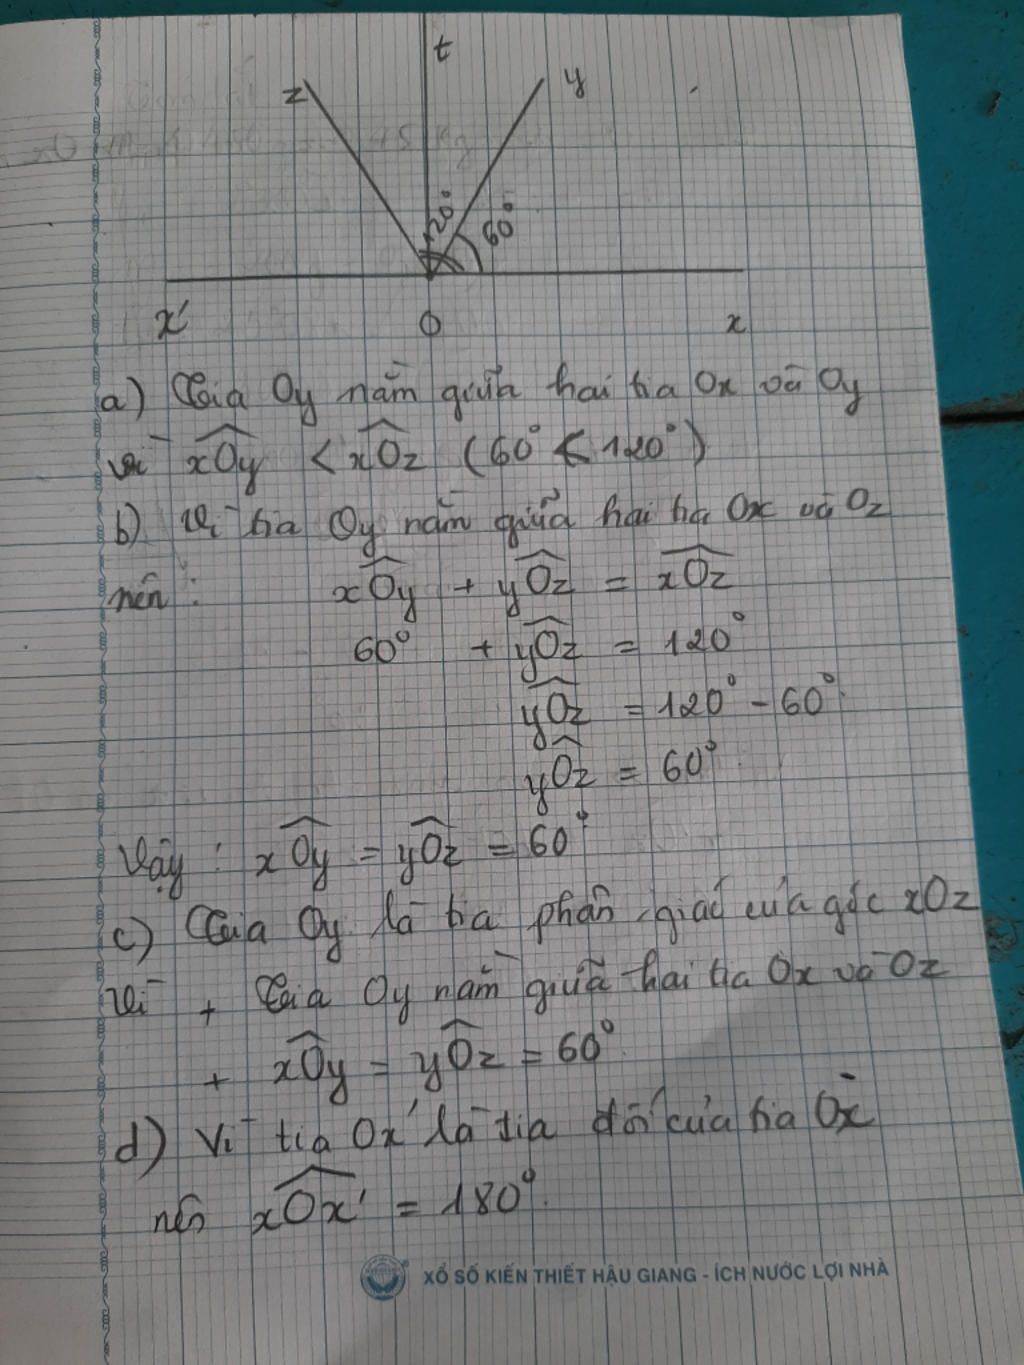 t
z y
120°
60°
x' O x
a) Tia Oy nằm giữa hai tia Ox và Oy
vì xOy < xOz (60° < 120°)
b) Vì tia Oy nằm giữa hai tia Ox và Oz
nên: xOy + yOz = xOz
60° + yOz = 120°
yOz = 120° - 60°
yOz = 60°
Vậy: xOy = yOz = 60°
c) Tia Oy là tia phân giác của góc xOz
Vì + Tia Oy nằm giữa hai tia Ox và Oz
+ xOy = yOz = 60°
d) Vì tia Ox' là tia đối của tia Ox
nên xOx' = 180°.
XỔ SỐ KIẾN THIẾT HẬU GIANG - ÍCH NƯỚC LỢI NHÀ